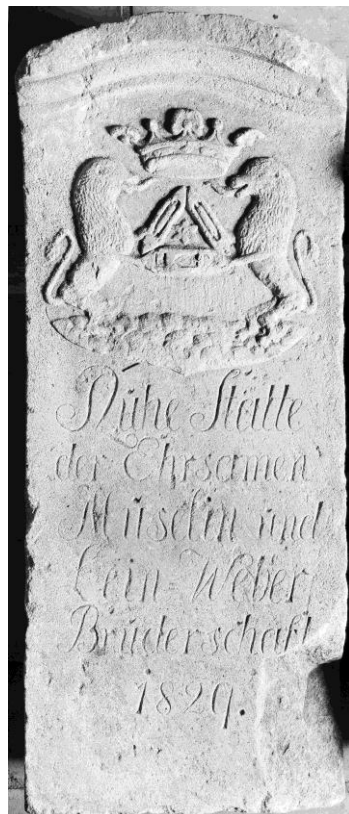 Ruhe Stätte
der Ehrsamen
Muselin und
Lein-Weber
Brüderschaft
1829.